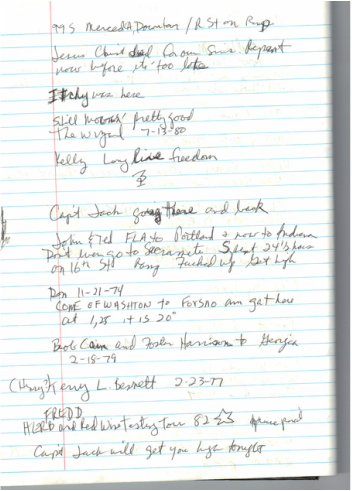 99 S Merced Downtown / R St on Ramp
Jesus Christ died for our Sins Repent
now before its too late
Itchy was here
Still movin' pretty good
The Wizard 7-13-80
Kelly Long live freedom
Capt Jack going there and back
John & Ted FLA to Portland & now to Indiana
Don't even go to Sacramento Spent 24 hours
on 16th St Pony Fucked up Got high
Don 11-21-74
COME OF WASHTON to FORSNO am got here
at 1,25 it is 20°
Bob Cain and Foster Harrison to Georgia
2-18-79
Kerry L. Bennett 2-23-77
FREDD
and Red Wine Tasting tour 82
Capt Jack will get you high tonight